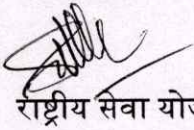 राष्ट्रीय सेवा यो